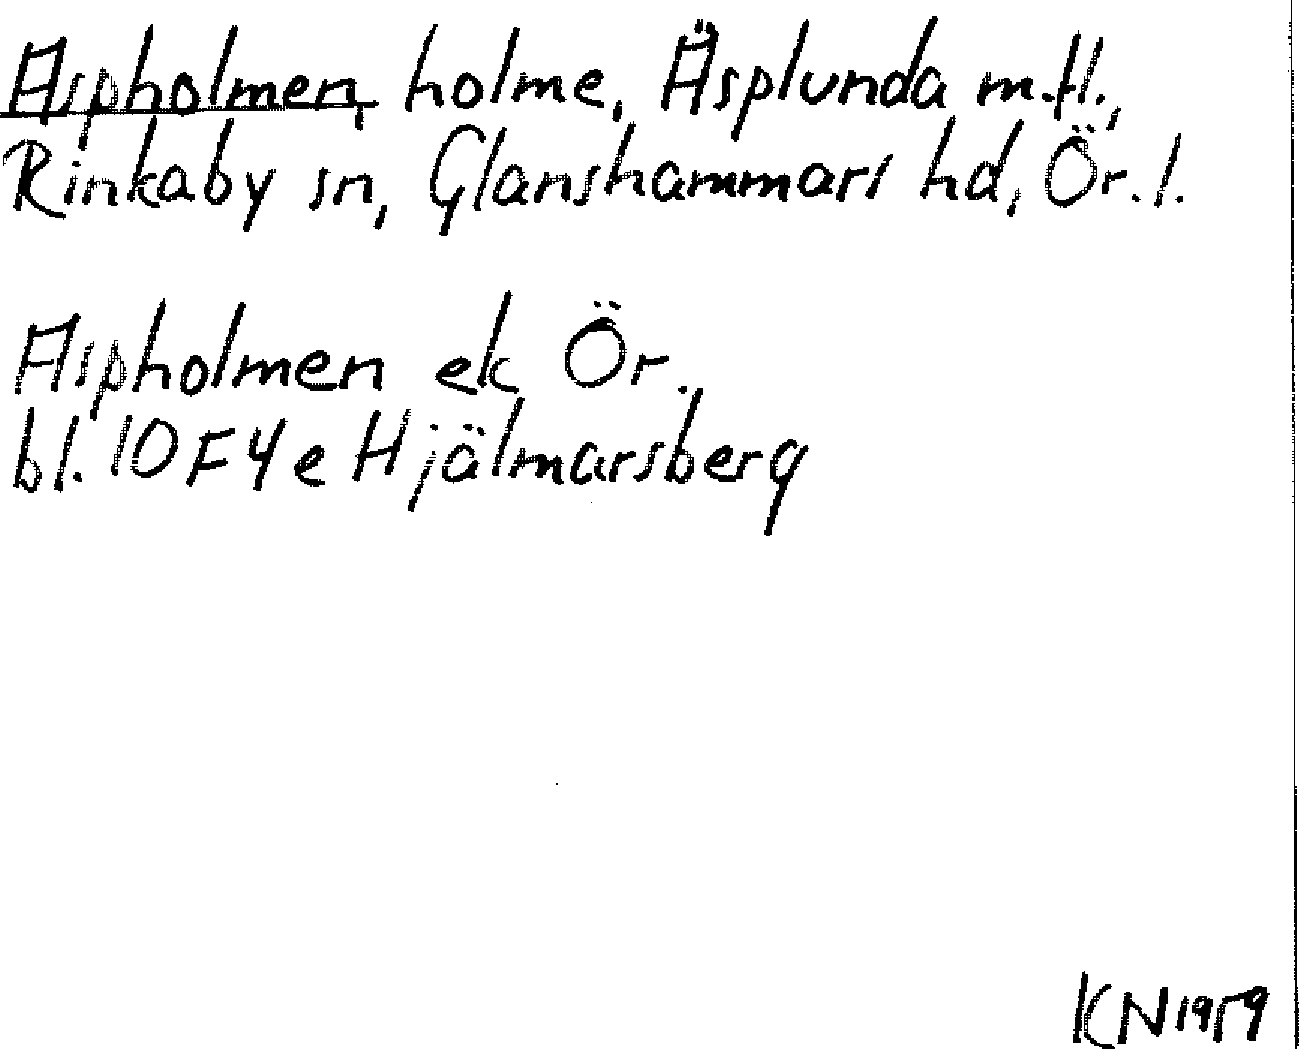 Aspholmen, holme, Äsplunda m.fl.,
Rinkaby sn, Glanshammars hd, Ör. l.
Aspholmen ek Ör.
bl. 10F4e Hjälmarsberg
KN 1959